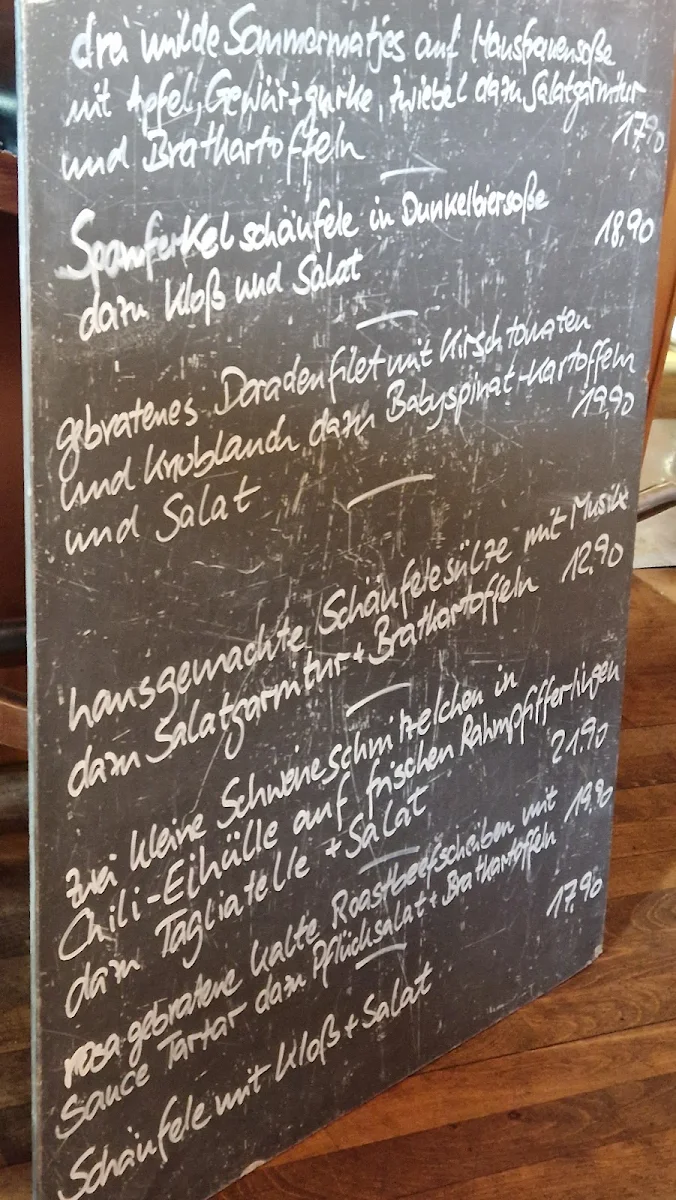 drei milde Sommermatjes auf Hausfrauensoße
mit Apfel, Gewürzgurke, Zwiebel dazu Salatgarnitur
und Bratkartoffeln 17,90
Spanferkelschäufele in Dunkelbiersoße
dazu Kloß und Salat 18,90
gebratenes Doradenfilet mit Kirschtomaten
und Knoblauch dazu Babyspinat-Kartoffeln
und Salat 19,90
hausgemachte Schäufelesülze mit Musik
dazu Salatgarnitur + Bratkartoffeln 12,90
zwei kleine Schweineschnitzelchen in
Chili-Eihülle auf frischen Rahmpfifferlingen
dazu Tagliatelle + Salat 21,90
rosa gebratene kalte Roastbeefscheiben mit
Sauce Tartar dazu Pflücksalat + Bratkartoffeln 19,90
Schäufele mit Kloß + Salat 17,90